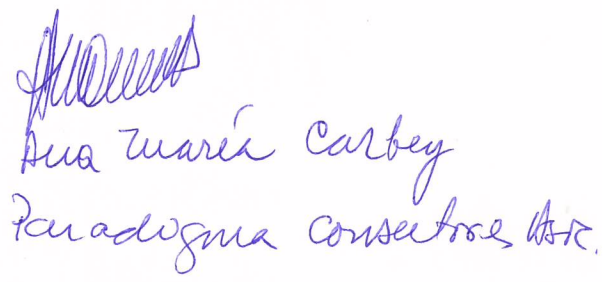 Ana María Carbey
Paradigma Consultores Asoc.